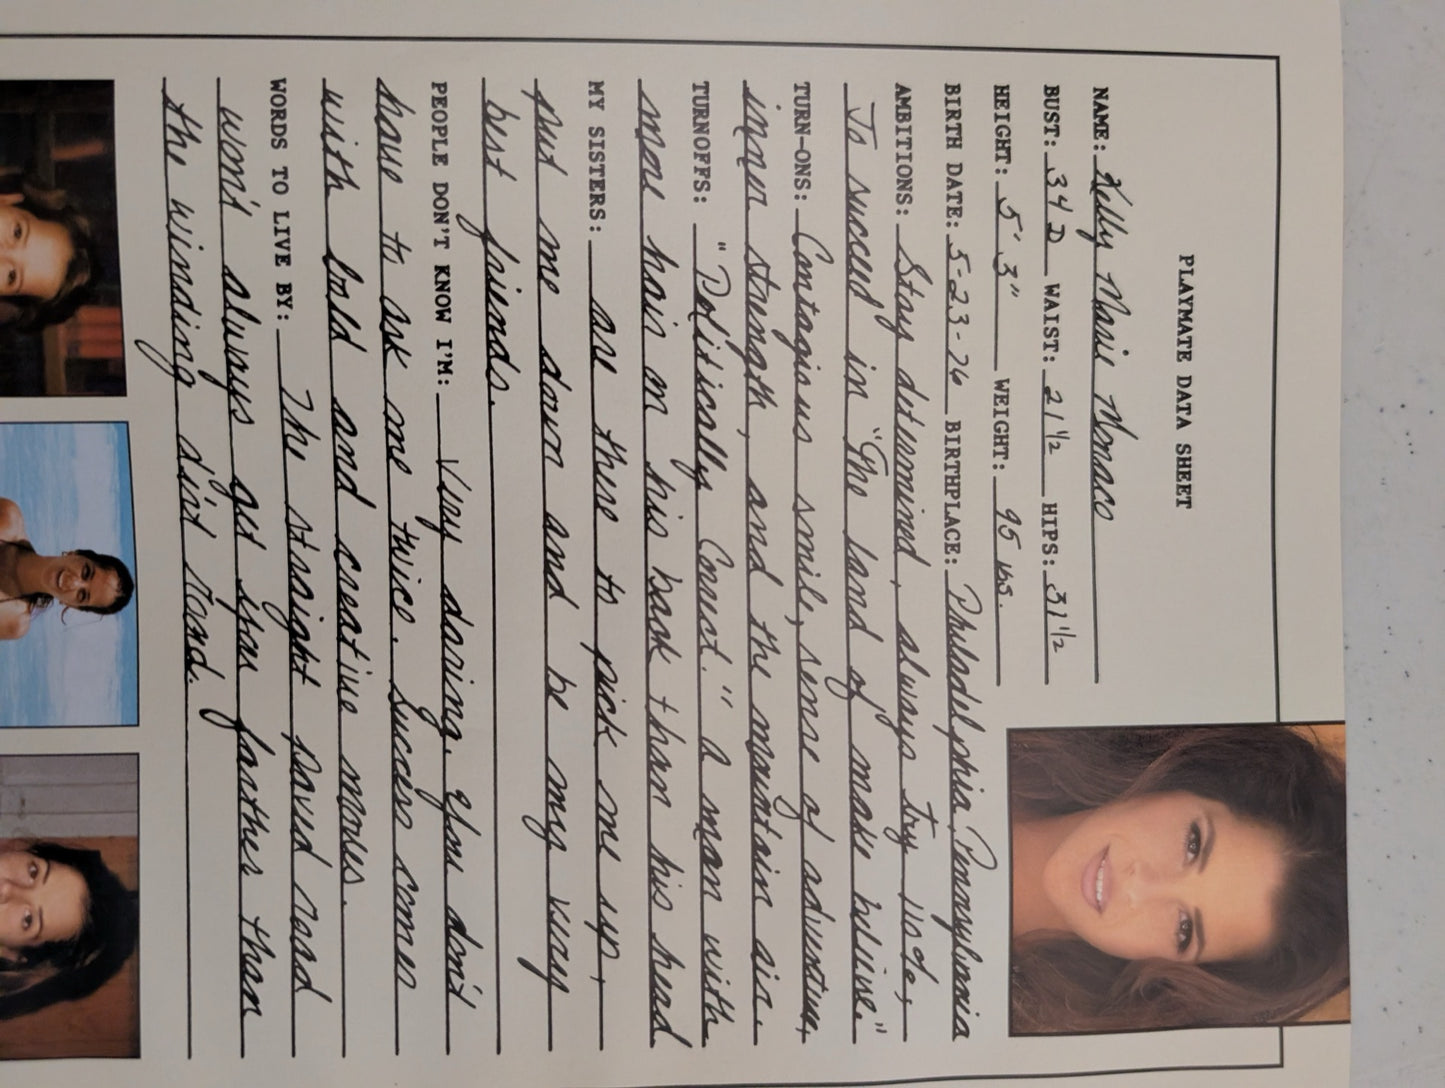 PLAYMATE DATA SHEET
NAME: Kelly Marie Monaco
BUST: 34 D WAIST: 21 1/2 HIPS: 31 1/2
HEIGHT: 5' 3" WEIGHT: 95 lbs.
BIRTH DATE: 5-23-76 BIRTHPLACE: Philadelphia, Pennsylvania
AMBITIONS: Stay determined, always try
To succeed in "The land of make believe."
TURN-ONS: Contagious smile, sense of adventure,
inner strength, and the mountain air.
TURNOFFS: "Politically Correct." A man with
more hair on his back than his head
MY SISTERS: are there to pick me up,
put me down and be my very
best friends.
PEOPLE DON'T KNOW I'M: Very daring. You don't
have to ask me twice. Success comes
with bold and creative moves.
WORDS TO LIVE BY: The straight paved road
won't always get you farther than
the winding dirt road.